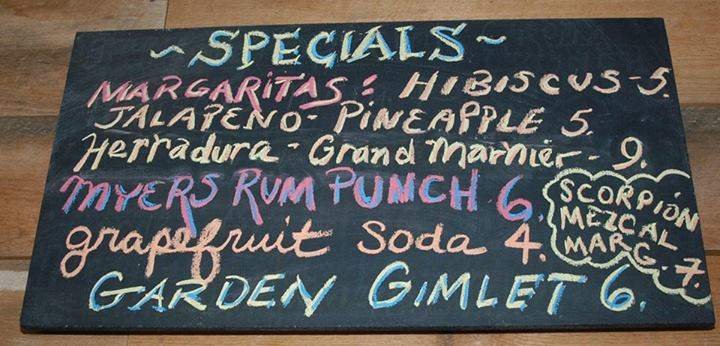 ~ SPECIALS ~
MARGARITAS: HIBISCUS-5.
JALAPENO-PINEAPPLE 5.
Herradura - Grand Marnier - 9.
MYERS RUM PUNCH 6.
grapefruit Soda 4.
GARDEN GIMLET 6.
SCORPION
MEZCAL
MARG. 7.